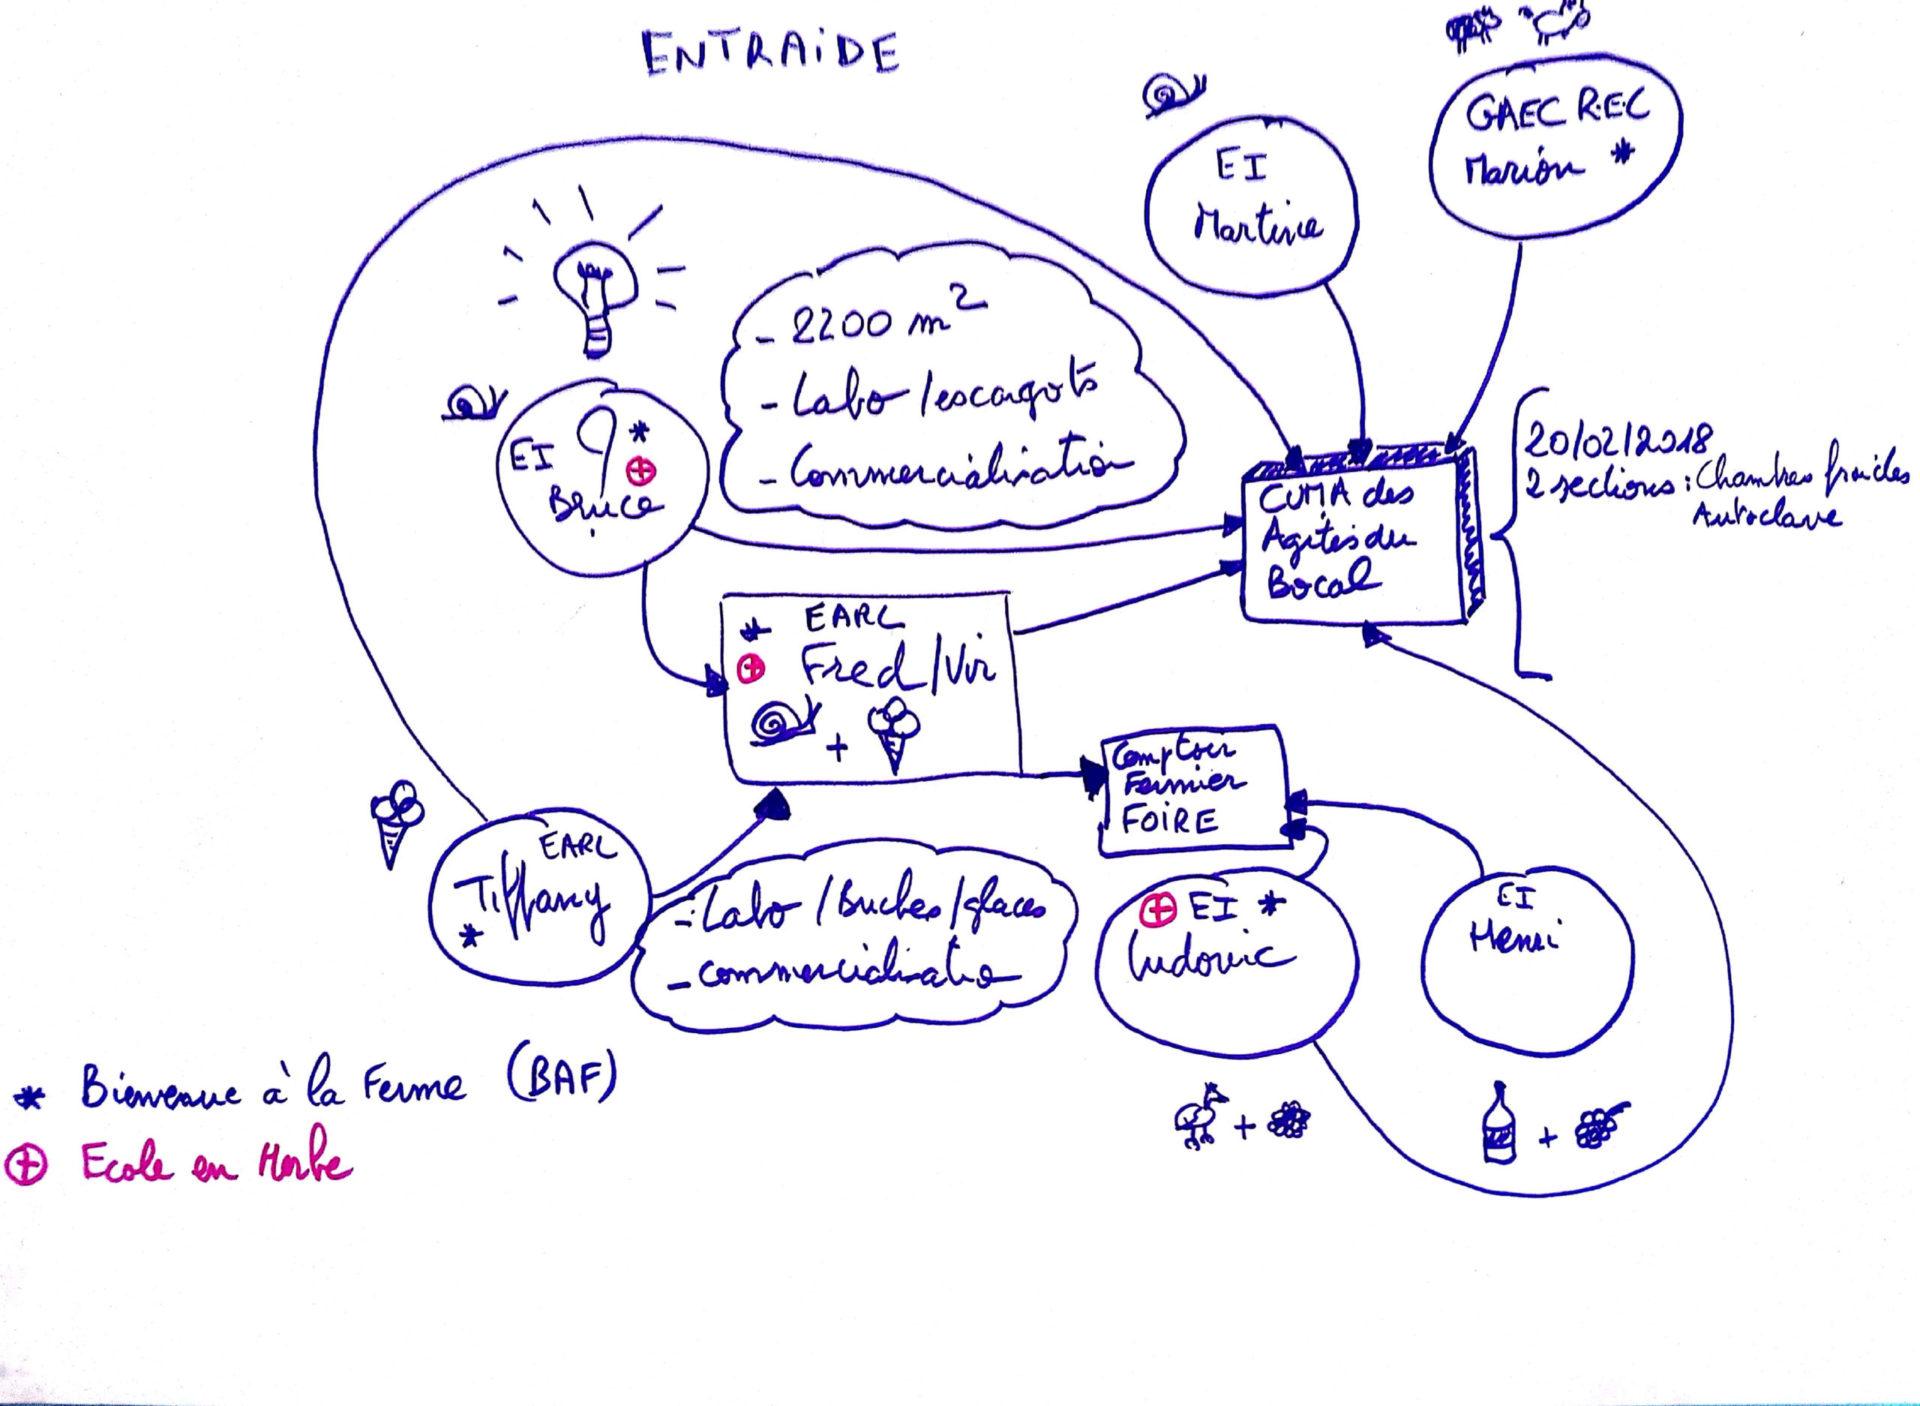 ENTRAIDE
GAEC R.E.C
Marion *
EI
Martine
- 2200 m²
- Labo / escargots
- Commercialisation
EI *
Bruce
20/02/2018
2 sections : Chambres froides
Autoclave
CUMA des
Agités du
Bocal
* EARL
Fred / Vir
+
Comptoir
Fermier
FOIRE
EARL
Tiffany
*
- Labo / Buches / glaces
- commercialisatio
EI *
Ludovic
EI
Henri
+
+
* Bienvenue à la Ferme (BAF)
Ecole en Herbe